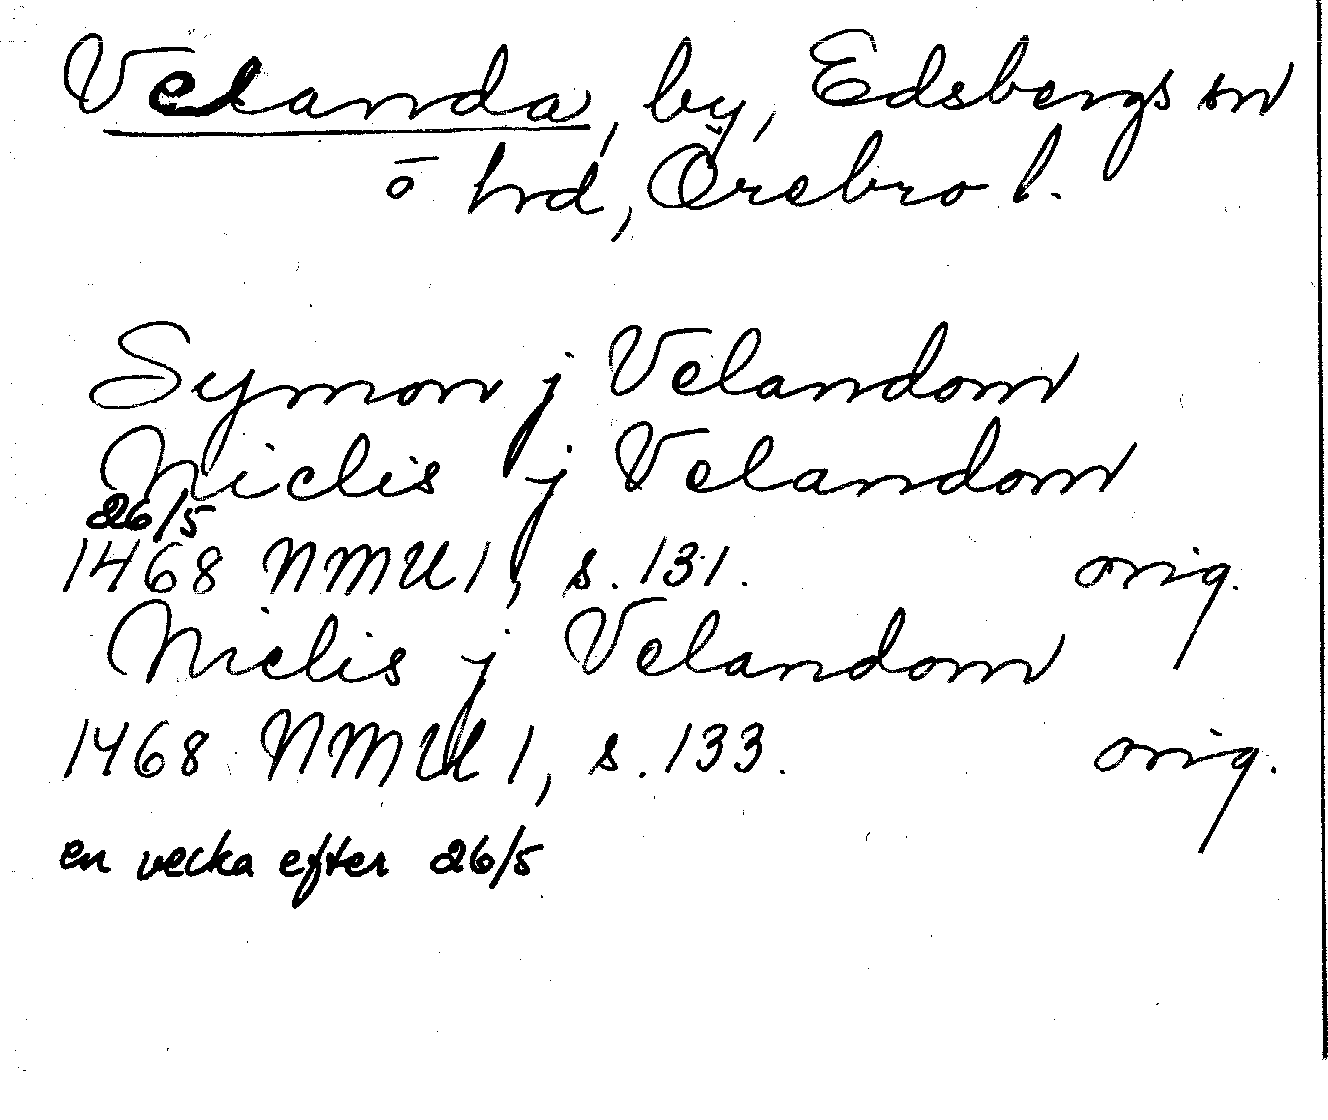 Velanda, by, Edsbergs sn
o hrd, Örebro l.
Symon j Velandom
Niclis j Velandom
26/5
1468 NMU 1, s. 131. orig.
Niclis j Velandom
1468 NMU 1, s. 133. orig.
en vecka efter 26/5